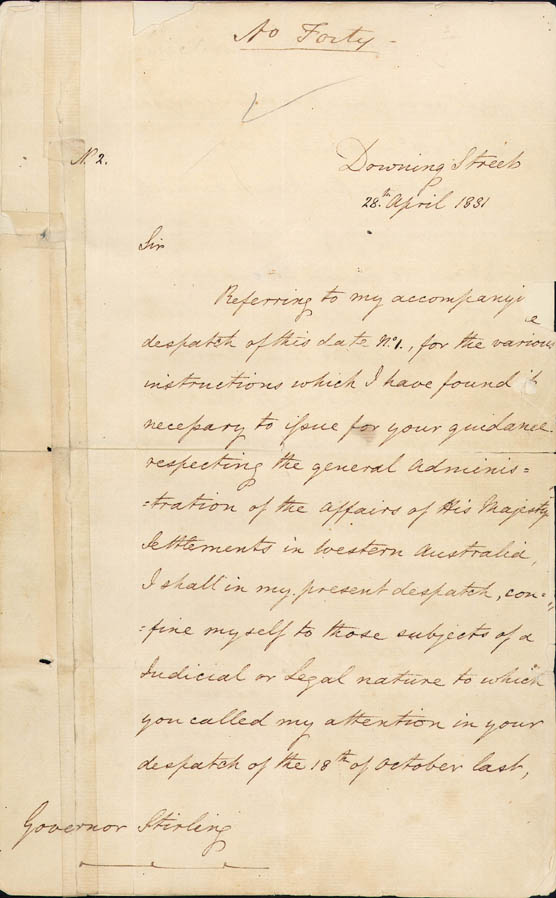 No Forty -
N. 2.
Downing Street
28th April 1831
Sir
Referring to my accompanyi
despatch of this date No 1., for the various
instructions which I have found it
necessary to issue for your guidance
respecting the general Adminis=
=tration of the Affairs of His Majesty
Settlements in Western Australia,
I shall in my present despatch, con=
=fine myself to those subjects of a
Judicial or Legal nature to which
you called my attention in your
despatch of the 18th of October last,
Governor Stirling